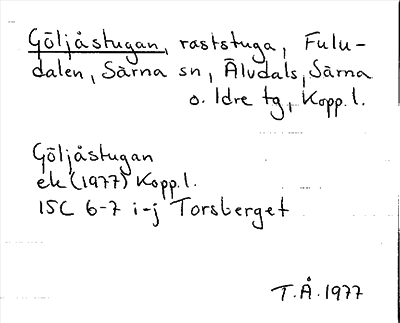 Göljåstugan, raststuga, Fulu-
dalen, Särna sn, Älvdals, Särna
o. Idre tg, Kopp. l.
Göljåstugan
ek (1977) Kopp. l.
15C 6-7 i-j Torsberget
T.Å. 1977